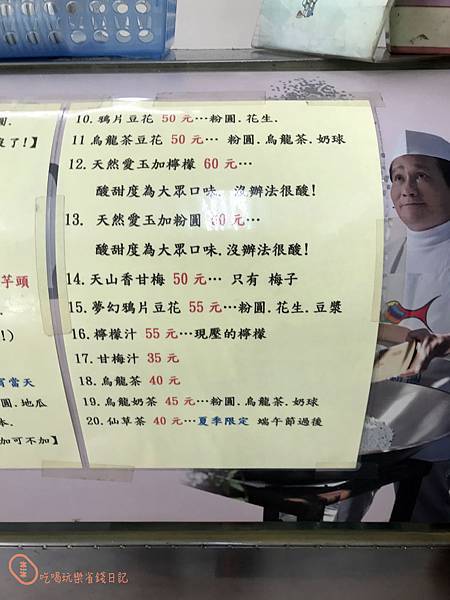 圓.
沒了!】
芋頭
!)
當天
圓.地瓜
本.
加可不加】
10.鴉片豆花 50 元…粉圓.花生.
11.烏龍茶豆花 50 元… 粉圓.烏龍茶.奶球
12.天然愛玉加檸檬 60 元…
酸甜度為大眾口味. 沒辦法很酸!
13. 天然愛玉加粉圓 60 元…
酸甜度為大眾口味.沒辦法很酸!
14.天山香甘梅 50 元… 只有 梅子
15.夢幻鴉片豆花 55 元…粉圓.花生.豆漿
16.檸檬汁 55 元…現壓的檸檬
17.甘梅汁 35 元
18.烏龍茶 40 元
19.烏龍奶茶 45 元…粉圓.烏龍茶.奶球
20.仙草茶 40 元…夏季限定 端午節過後
吃喝玩樂省錢日記